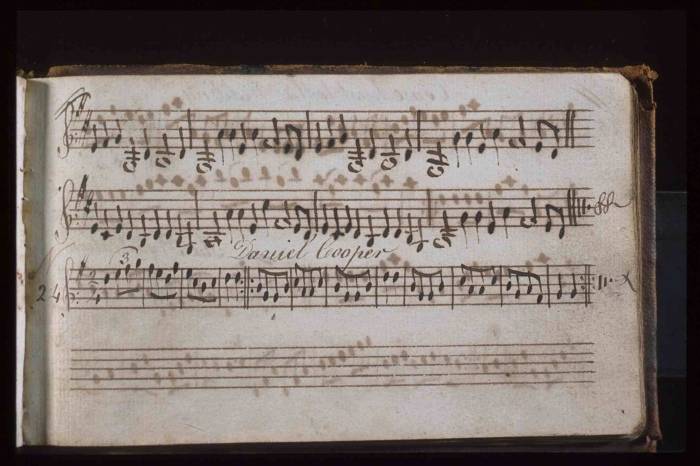 Daniel Cooper
3
24